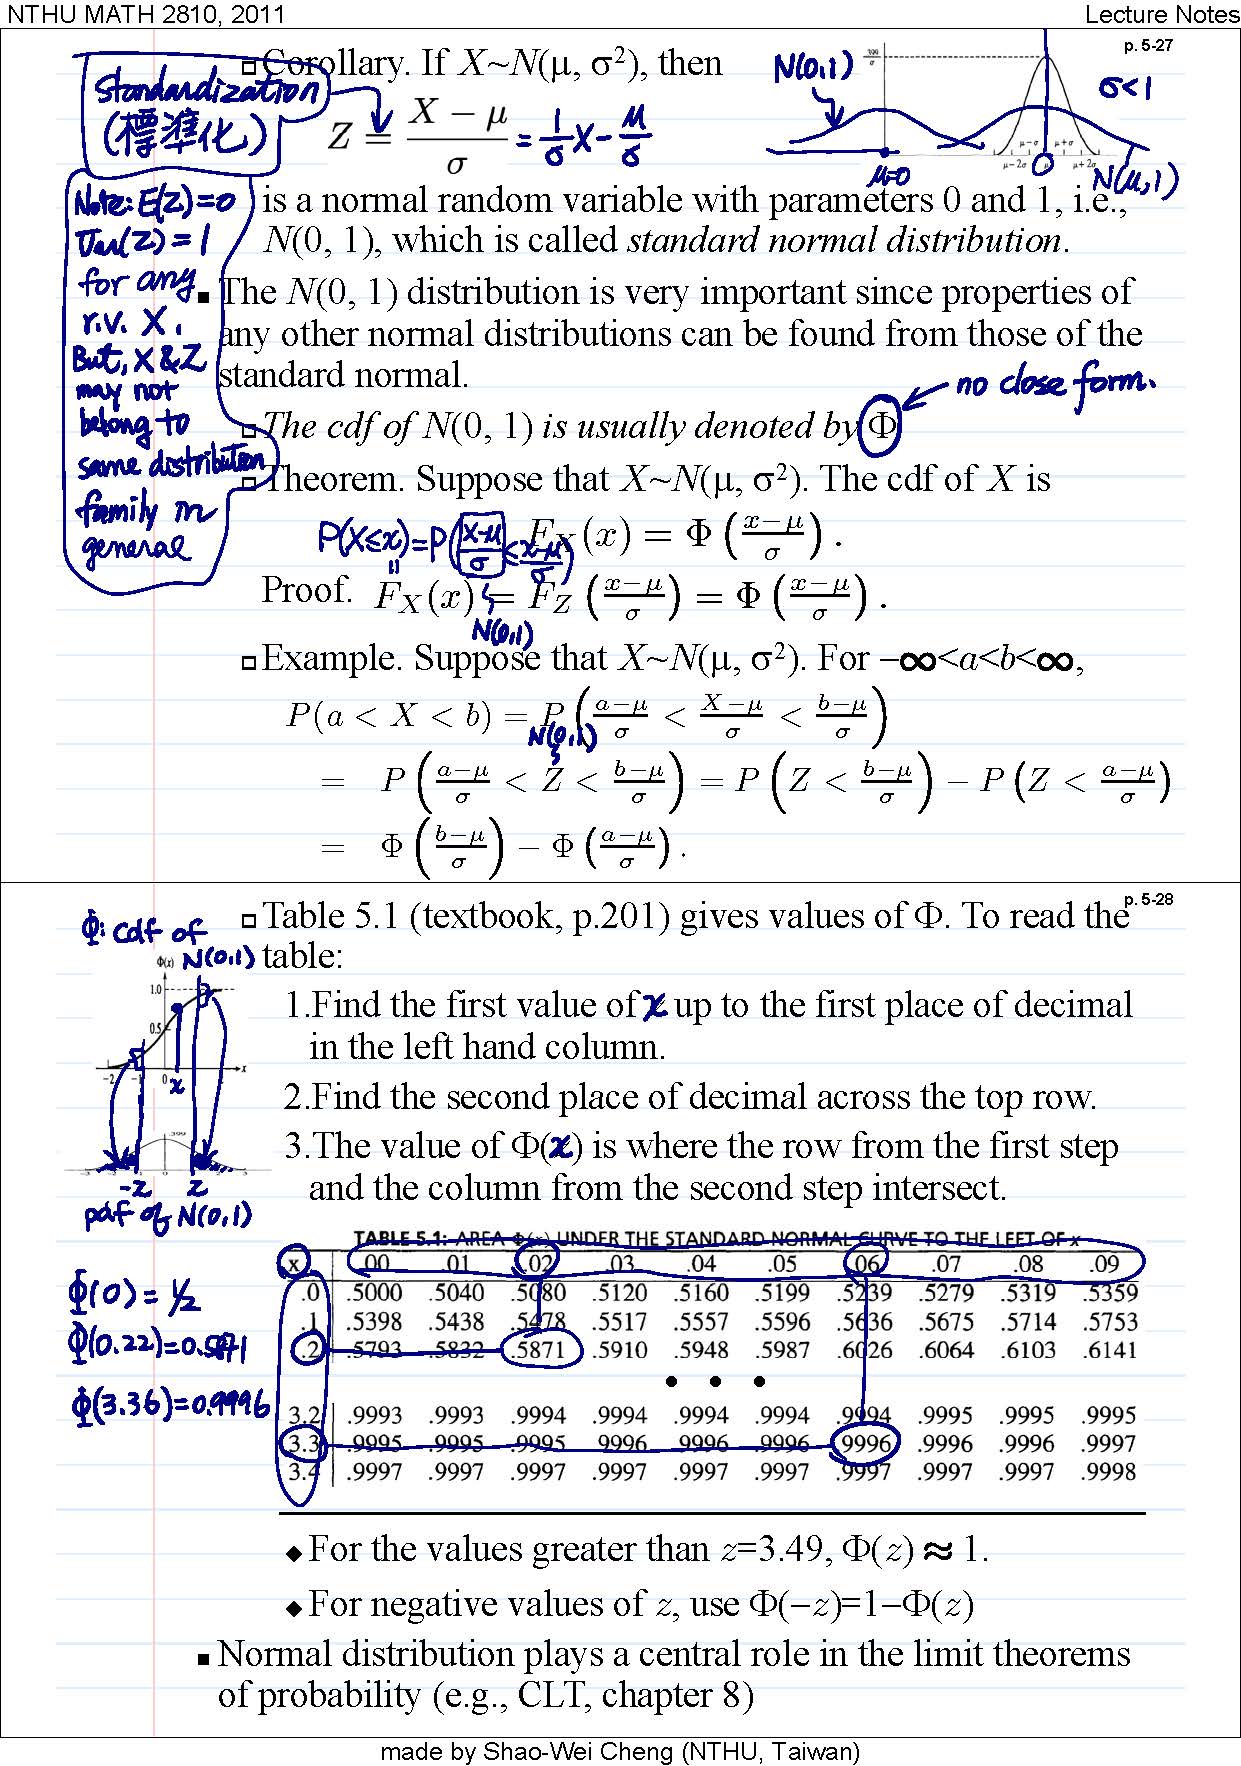 NTHU MATH 2810, 2011
Lecture Notes
p. 5-27
Standardization
(標準化)
Corollary. If X~N(μ, σ²), then
Z = (X − μ)/σ = 1/σ X − μ/σ
N(0,1)
.399/σ
σ<1
μ−2σ μ−σ μ μ+σ μ+2σ
μ=0
0
N(μ,1)
Note: E(Z)=0
Var(Z)=1
for any
r.v. X.
But, X & Z
may not
belong to
same distribution
family in
general
is a normal random variable with parameters 0 and 1, i.e.,
N(0, 1), which is called standard normal distribution.
The N(0, 1) distribution is very important since properties of
any other normal distributions can be found from those of the
standard normal.
no close form.
The cdf of N(0, 1) is usually denoted by Φ
Theorem. Suppose that X~N(μ, σ²). The cdf of X is
F_X(x) = Φ((x−μ)/σ).
P(X≤x)=P((X−μ)/σ ≤ (x−μ)/σ)
N(0,1)
Proof. F_X(x) = F_Z((x−μ)/σ) = Φ((x−μ)/σ).
Example. Suppose that X~N(μ, σ²). For −∞<a<b<∞,
P(a < X < b) = P((a−μ)/σ < (X−μ)/σ < (b−μ)/σ)
N(0,1)
= P((a−μ)/σ < Z < (b−μ)/σ) = P(Z < (b−μ)/σ) − P(Z < (a−μ)/σ)
= Φ((b−μ)/σ) − Φ((a−μ)/σ).
p. 5-28
Φ: cdf of
N(0,1)
Φ(x)
1.0
0.5
−2 −1 0 x
x
.399
−z z
pdf of N(0,1)
Table 5.1 (textbook, p.201) gives values of Φ. To read the
table:
1.Find the first value of x up to the first place of decimal
in the left hand column.
2.Find the second place of decimal across the top row.
3.The value of Φ(x) is where the row from the first step
and the column from the second step intersect.
TABLE 5.1: AREA Φ(x) UNDER THE STANDARD NORMAL CURVE TO THE LEFT OF x
x .00 .01 .02 .03 .04 .05 .06 .07 .08 .09
.0 .5000 .5040 .5080 .5120 .5160 .5199 .5239 .5279 .5319 .5359
.1 .5398 .5438 .5478 .5517 .5557 .5596 .5636 .5675 .5714 .5753
.2 .5793 .5832 .5871 .5910 .5948 .5987 .6026 .6064 .6103 .6141
• • •
3.2 .9993 .9993 .9994 .9994 .9994 .9994 .9994 .9995 .9995 .9995
3.3 .9995 .9995 .9995 .9996 .9996 .9996 .9996 .9996 .9996 .9997
3.4 .9997 .9997 .9997 .9997 .9997 .9997 .9997 .9997 .9997 .9998
Φ(0)=1/2
Φ(0.22)=0.5871
Φ(3.36)=0.9996
For the values greater than z=3.49, Φ(z) ≈ 1.
For negative values of z, use Φ(−z)=1−Φ(z)
Normal distribution plays a central role in the limit theorems
of probability (e.g., CLT, chapter 8)
made by Shao-Wei Cheng (NTHU, Taiwan)